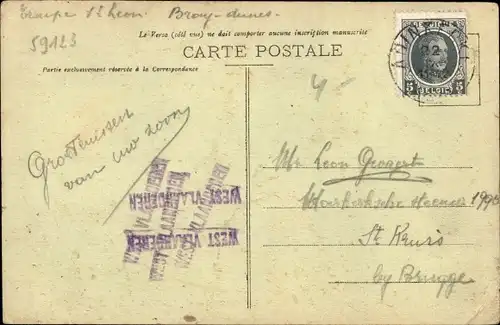 St Leon. Bray-dunes.
59123
Le Verso (côté vue) ne doit comporter aucune inscription manuscrite
CARTE POSTALE
Partie exclusivement réservée à la Correspondance
22
5 BELGIË 5
4-
Groetenissen
van uw zoon
Mr Leon Gevaert
St Kruis
by Brugge
WEST VLAANDEREN
WEST VLAANDEREN
WEST VLAANDEREN
WEST VLAANDEREN
WEST VLAANDEREN